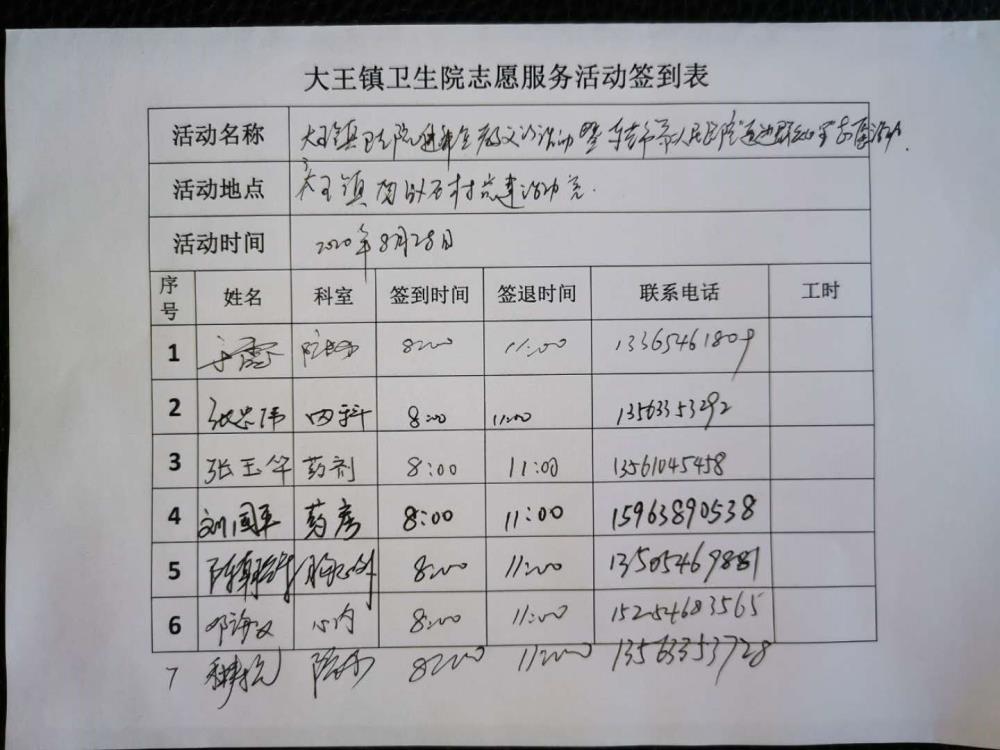 大王镇卫生院志愿服务活动签到表
活动名称 大王镇卫生院健康生 义诊活动暨 市 人民医院 活动.
活动地点 大王镇 村党建活动室.
活动时间 2020年8月28日
序号 姓名 科室 签到时间 签退时间 联系电话 工时
1 8:00 11:00 13365461809
2 张忠伟 内科 8:00 11:00 13563353292
3 张玉华 药剂 8:00 11:00 13561045458
4 刘国平 药房 8:00 11:00 15963890538
5 8:00 11:00 13505469881
6 邓海文 心内 8:00 11:00 15254683565
7 8:00 11:00 13563353728